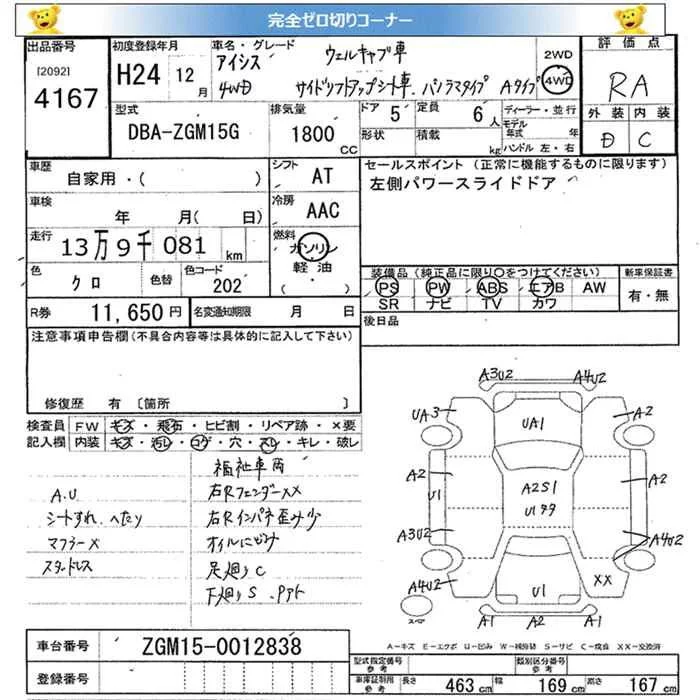 完全ゼロ切りコーナー
出品番号 初度登録年月 車名・グレード ウェルキャブ車 2WD 評価点
[2092] アイシス
4167 H24 12月 4WD サイドリフトアップシート車 パノラマタイプ Aタイプ 4WD RA
型式 排気量 ドア 5 定員 6人 ディーラー・並行 外装 内装
DBA-ZGM15G 1800CC 形状 積載 kg モデル年式 年 ハンドル 左・右 D C
車歴 シフト セールスポイント (正常に機能するものに限ります)
自家用・( ) AT 左側パワースライドドア
車検 冷房
年 月( 日) AAC
走行 燃料
13万9千081km ガソリン
軽油
色 色替 色コード 装備品(純正品に限り○をつけてください) 新車保証書
クロ 202 ・( )・ PS PW ABS エアB AW 有・無
SR ナビ TV カワ
R券 11,650円 名変通知期限 月 日 後日品
注意事項申告欄(不具合内容等は具体的に記入して下さい)
修復歴 有 〔箇所 〕
検査員 FW キズ・飛石・ヒビ割・リペア跡・×要
記入欄 内装 キズ・汚レ・コゲ・穴・スレ・キレ・破レ
福祉車両
A.U 右Rフェンダー××
シートすれ、へたり 右Rインパネ歪み少
マフラー× オイルにじみ
スタッドレス 足廻りC
下廻りS.Pアト
A3U2 A4U2
UA3 UA1 A2
A2 U1 A2S1 A2
U1タタ
A3U2 A4U2
A4U2 U1 ××
スペア A1 A2 A1
車台番号 ZGM15-0012838
A-キズ E-エクボ U-凹み W-補修跡 S-サビ C-腐食 XX-交換済
登録番号
型式指定番号 参考 類別区分番号 参考
車庫証明用 参考 長さ 463cm 幅 169cm 高さ 167cm